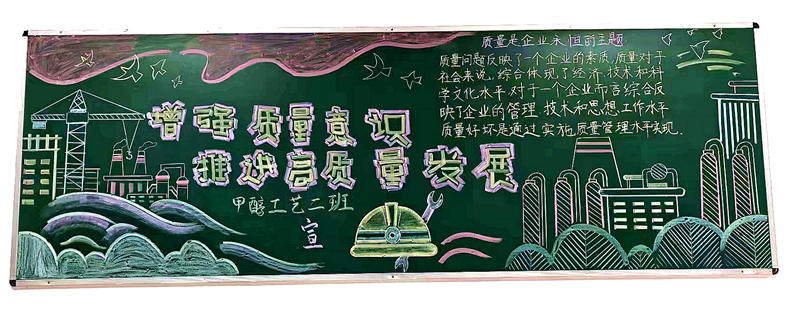 增强质量意识
推进高质量发展
甲醇工艺二班
宣
质量是企业永恒的主题
质量问题反映了一个企业的素质,质量对于
社会来说,综合体现了经济、技术和科
学文化水平,对于一个企业而言综合反
映了企业的管理、技术和思想工作水平
质量好坏是通过实施质量管理水平实现.